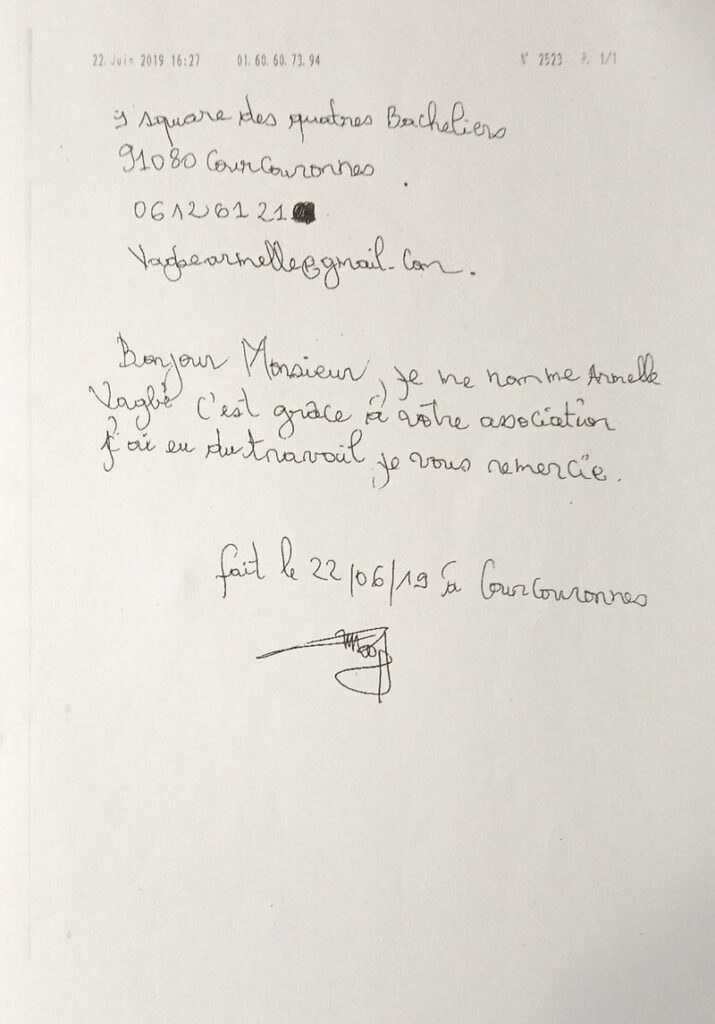 22. Juin 2019 16:27 01.60.60.73.94 N° 2523 P. 1/1
square des quatres Bacheliers
91080 CourCouronnes
06 12 61 21
Vagbearmelle@gmail.Com.
Bonjour Monsieur, je me nomme Armelle
Vagbé c'est grâce à votre association
j'ai eu du travail, je vous remercie.
fait le 22/06/19 à CourCouronnes